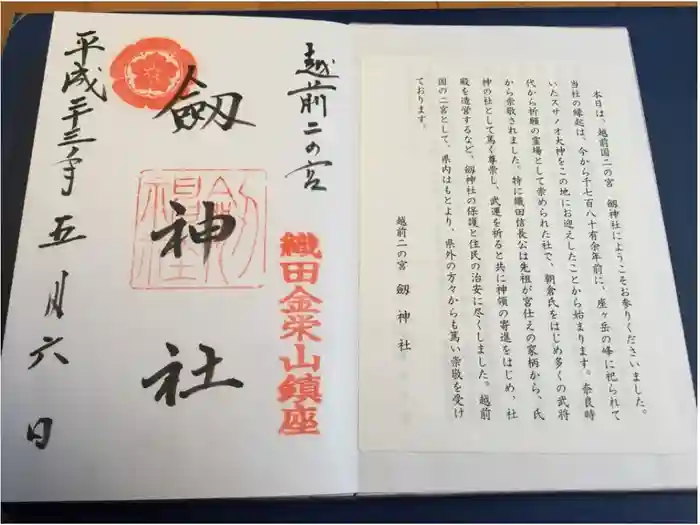 越前二の宮
織田金栄山鎮座
劔神社
平成二十三年五月六日
本日は、越前国二の宮 劔神社にようこそお参りくださいました。
当社の縁起は、今から千七百八十有余年前に、座ヶ岳の峰に祀られて
いたスサノオ大神をこの地にお迎えしたことから始まります。奈良時
代から祈願の霊場として崇められた社で、朝倉氏をはじめ多くの武将
から崇敬されました。特に織田信長公は先祖が宮仕えの家柄から、氏
神の社として篤く尊崇し、武運を祈ると共に神領の寄進をはじめ、社
殿を造営するなど、劔神社の保護と住民の治安に尽くしました。越前
国の二宮として、県内はもとより、県外の方々からも篤い崇敬を受け
ております。
越前二の宮 劔神社